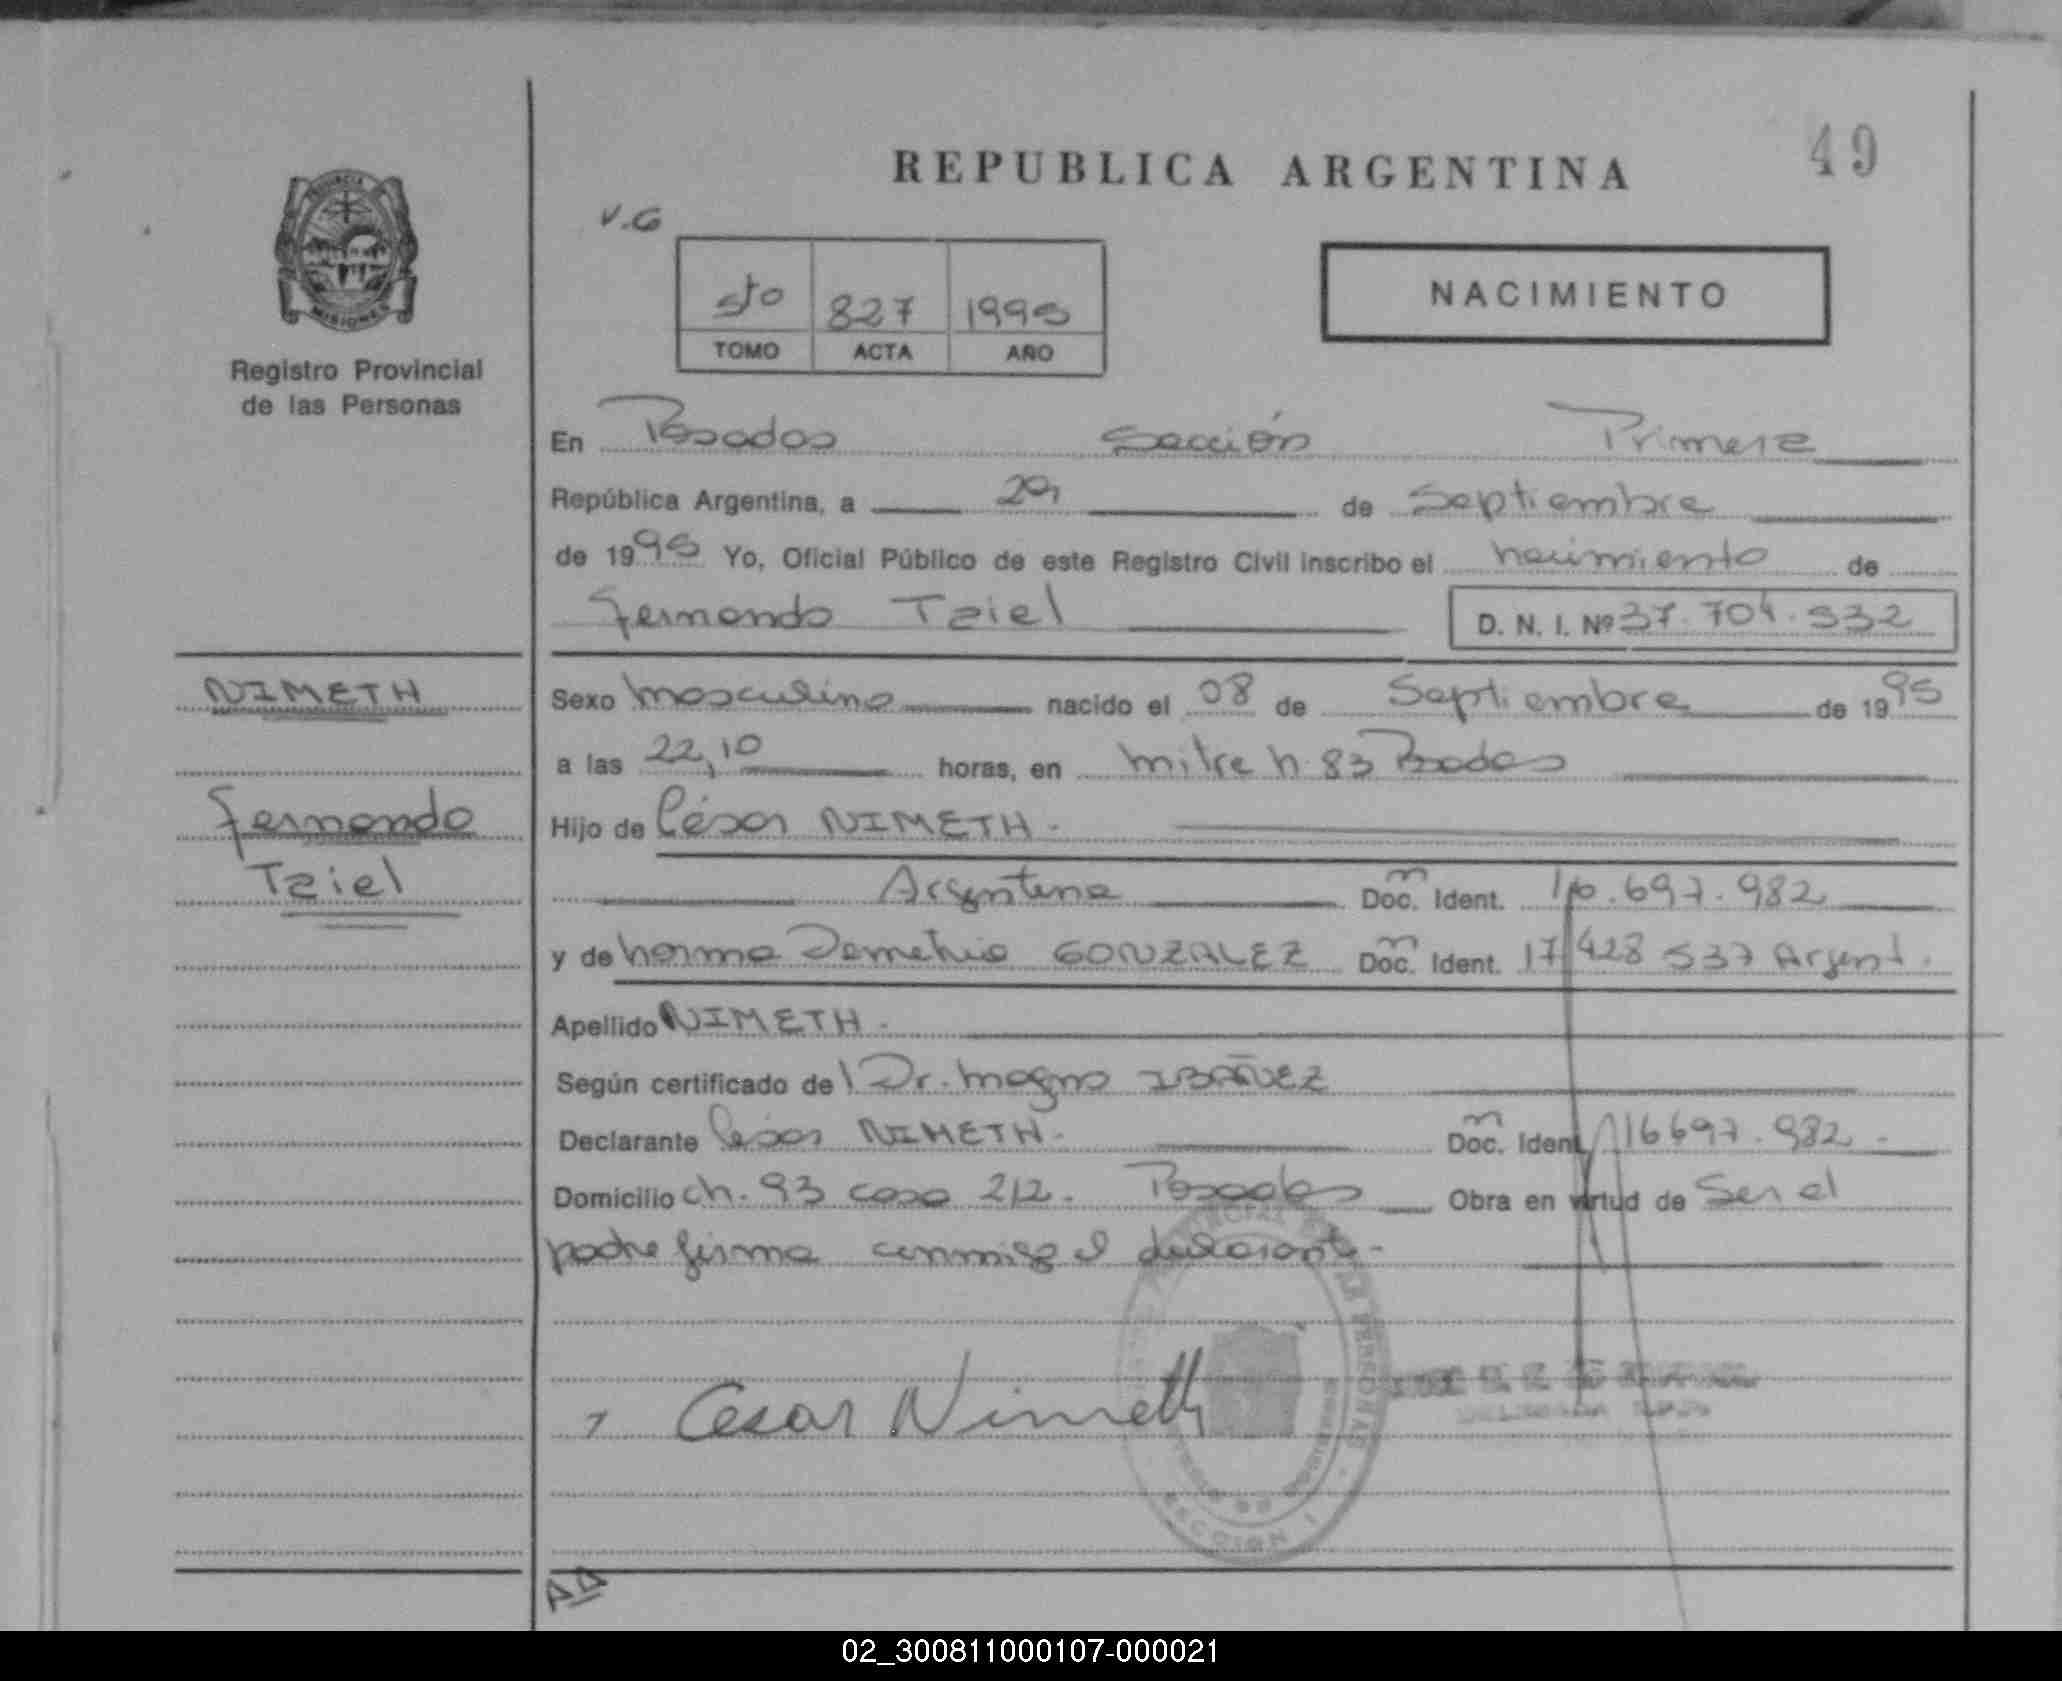 49
REPUBLICA ARGENTINA
V.G
5to 827 1995
TOMO ACTA AÑO
NACIMIENTO
PROVINCIA
MISIONES
Registro Provincial
de las Personas
En Posadas Sección Primera
República Argentina, a 29 de Septiembre
de 1995 Yo, Oficial Público de este Registro Civil inscribo el nacimiento de
Fernando Taiel D. N. I. Nº 37.704.532
NIMETH
Sexo masculino nacido el 08 de Septiembre de 1995
a las 22,10 horas, en mitre n 83 Posadas
Fernando
Hijo de César NIMETH.
Taiel
Argentina Doc. Ident. 16.697.982
y de norma Demetria GONZALEZ Doc. Ident. 17 428 537 Argent.
Apellido NIMETH.
Según certificado de Dr. magno IBAÑEZ
Declarante César NIMETH. Doc. Ident. 16697.982.
Domicilio ch. 93 casa 212. Posadas Obra en virtud de Ser el
padre firma conmigo el declarante.
Cesar Nimeth
SECCION 1
02_300811000107-000021